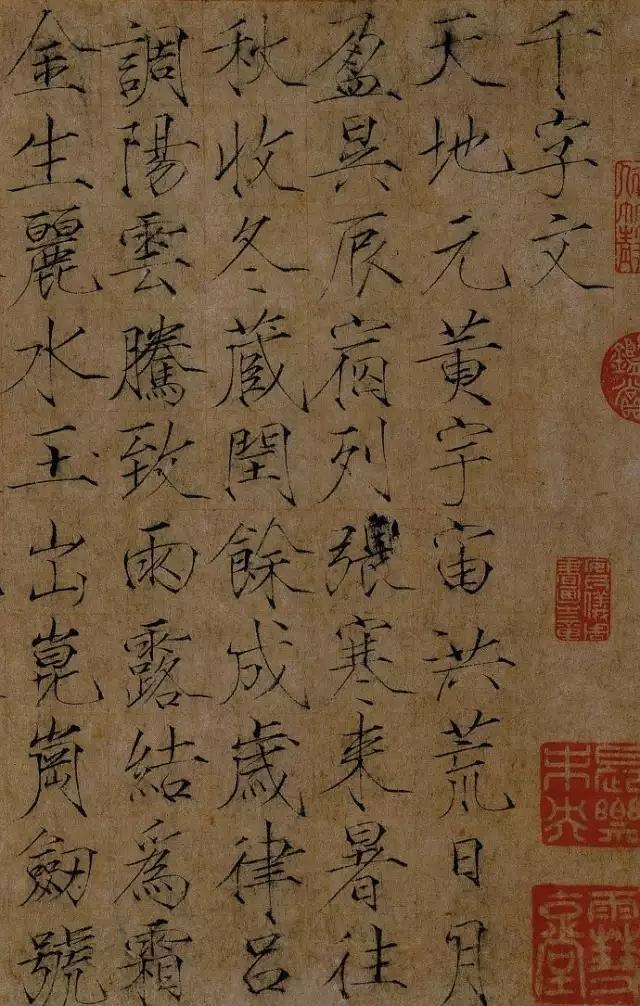 千字文
天地元黄宇宙洪荒日月
盈昃辰宿列張寒来暑往
秋收冬藏閏餘成歲律呂
調陽雲騰致雨露結爲霜
金生麗水玉出崑崗劒號